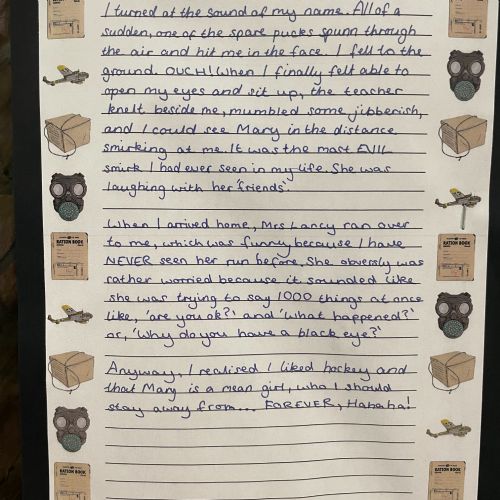 I turned at the sound of my name. All of a
sudden, one of the spare pucks spunn through
the air and hit me in the face. I fell to the
ground. OUCH! When I finally felt able to
open my eyes and sit up, the teacher
knelt beside me, mumbled some jibberish,
and I could see Mary in the distance
smirking at me. It was the most EVIL
smirk I had ever seen in my life. She was
laughing with her 'friends'.
When I arrived home, Mrs Lancy ran over
to me, which was funny because I have
NEVER seen her run before. She obversly was
rather worried because it sounded like
she was trying to say 1000 things at once
like, 'are you ok?' and 'what happened?'
or, 'Why do you have a black eye?'
Anyway, I realised I liked hockey and
that Mary is a mean girl, who I should
stay away from... FOREVER, Hahaha!
RATION BOOK
RATION BOOK
RATION BOOK
RATION BOOK